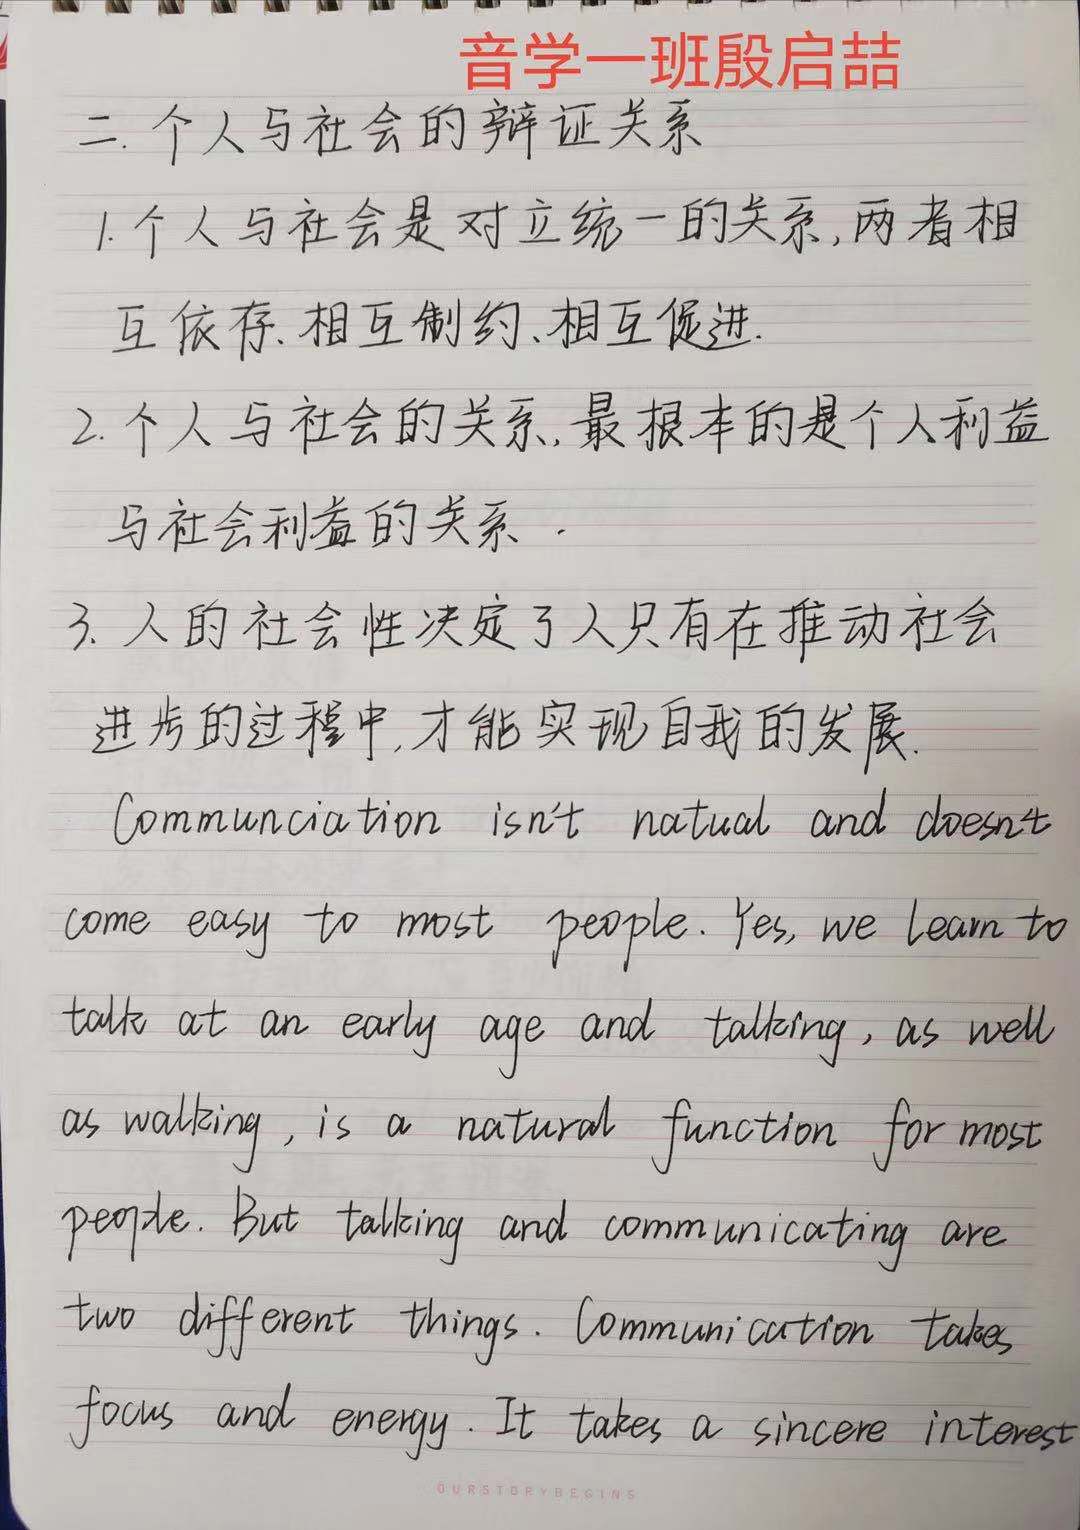 音学一班殷启喆
二.个人与社会的辩证关系
1.个人与社会是对立统一的关系,两者相
互依存、相互制约、相互促进.
2.个人与社会的关系,最根本的是个人利益
与社会利益的关系.
3.人的社会性决定了人只有在推动社会
进步的过程中,才能实现自我的发展.
Communciation isn't natual and doesn't
come easy to most people. Yes, we learn to
talk at an early age and talking, as well
as walking, is a natural function for most
people. But talking and communicating are
two different things. Communication takes
focus and energy. It takes a sincere interest
OURSTORYBEGINS